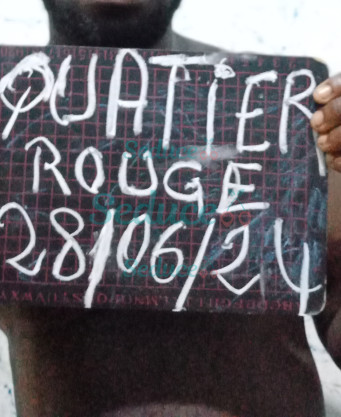 QUATIER
ROUGE
28/06/24